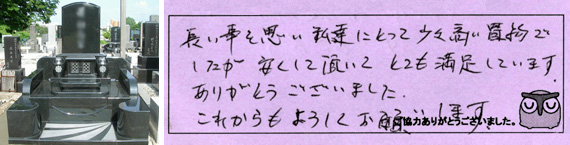 長い事を思い私達にとって少々高い買物で
したが安くして頂いてとても満足しています。
ありがとうございました。
これからもよろしくお願いします。
ご協力ありがとうございました。